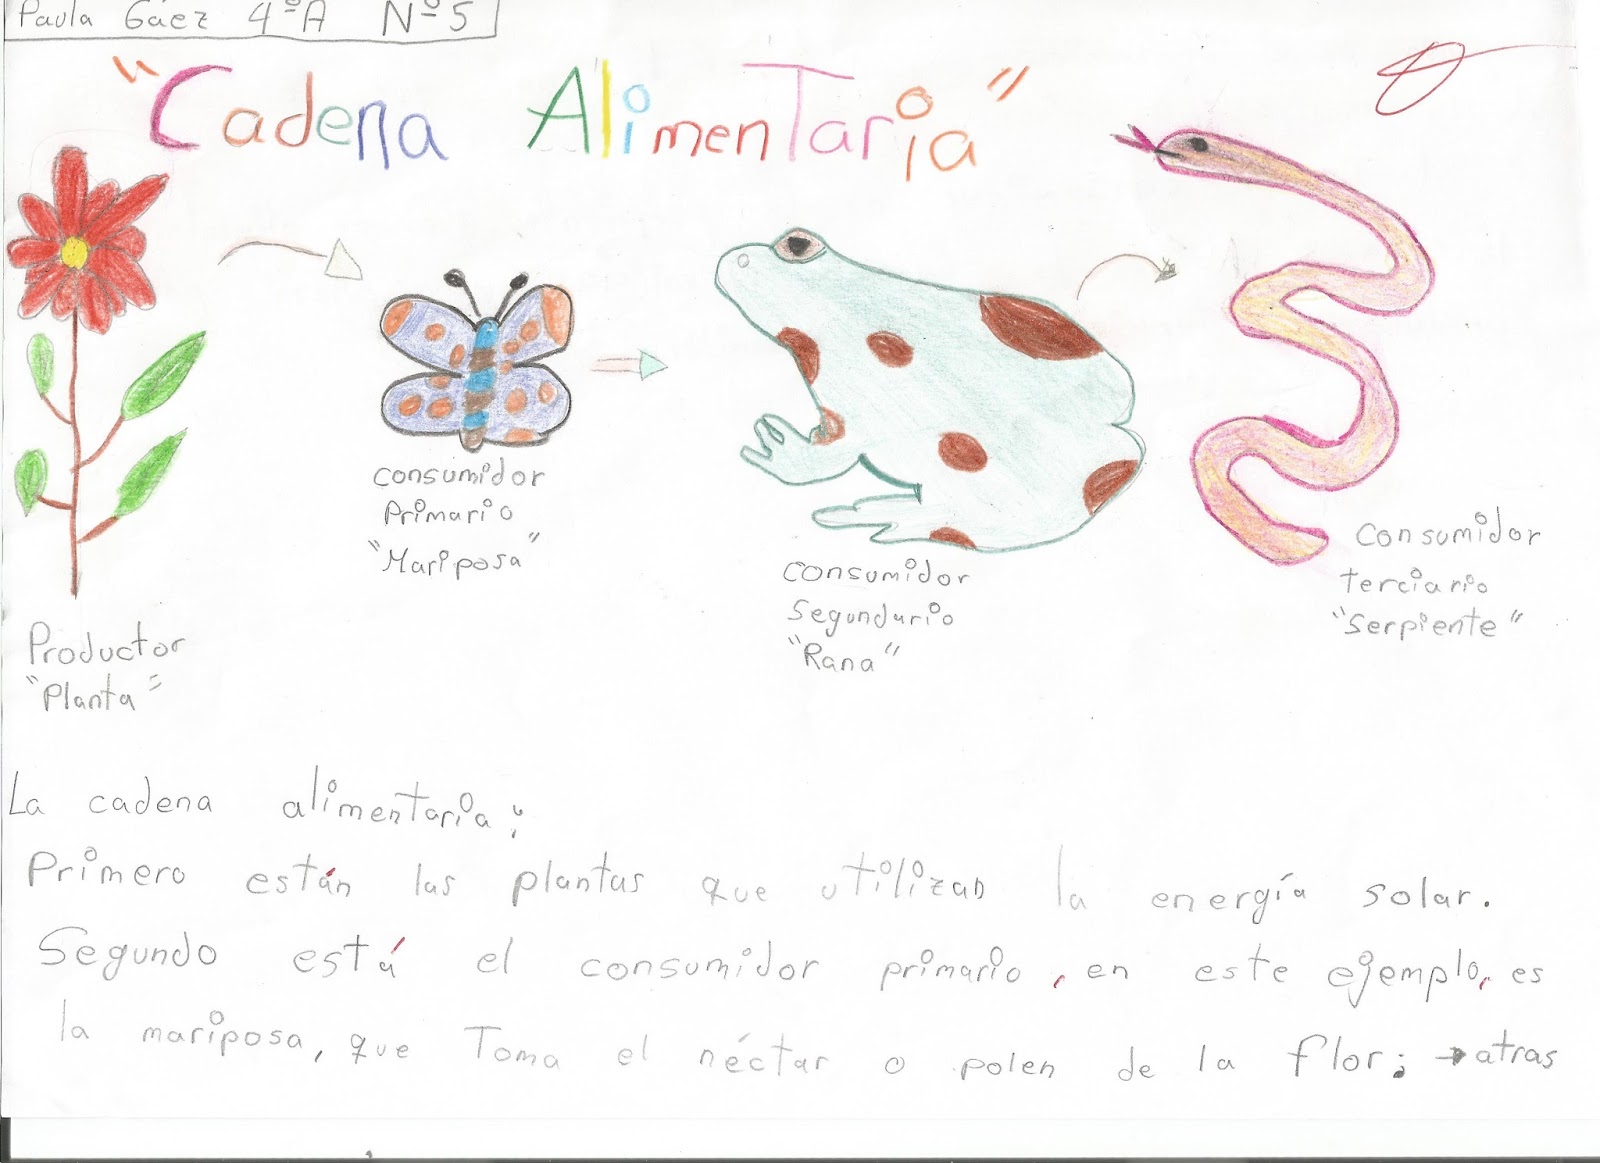 Paula Gáez 4ºA Nº5
"Cadena Alimentaria"
consumidor
Primario
"Mariposa"
consumidor
Segundario
"Rana"
Consumidor
terciario
"Serpiente"
Productor
"Planta"
La cadena alimentaria:
Primero están las plantas que utilizan la energía solar.
Segundo está el consumidor primario, en este ejemplo, es
la mariposa, que Toma el néctar o polen de la flor; →atras